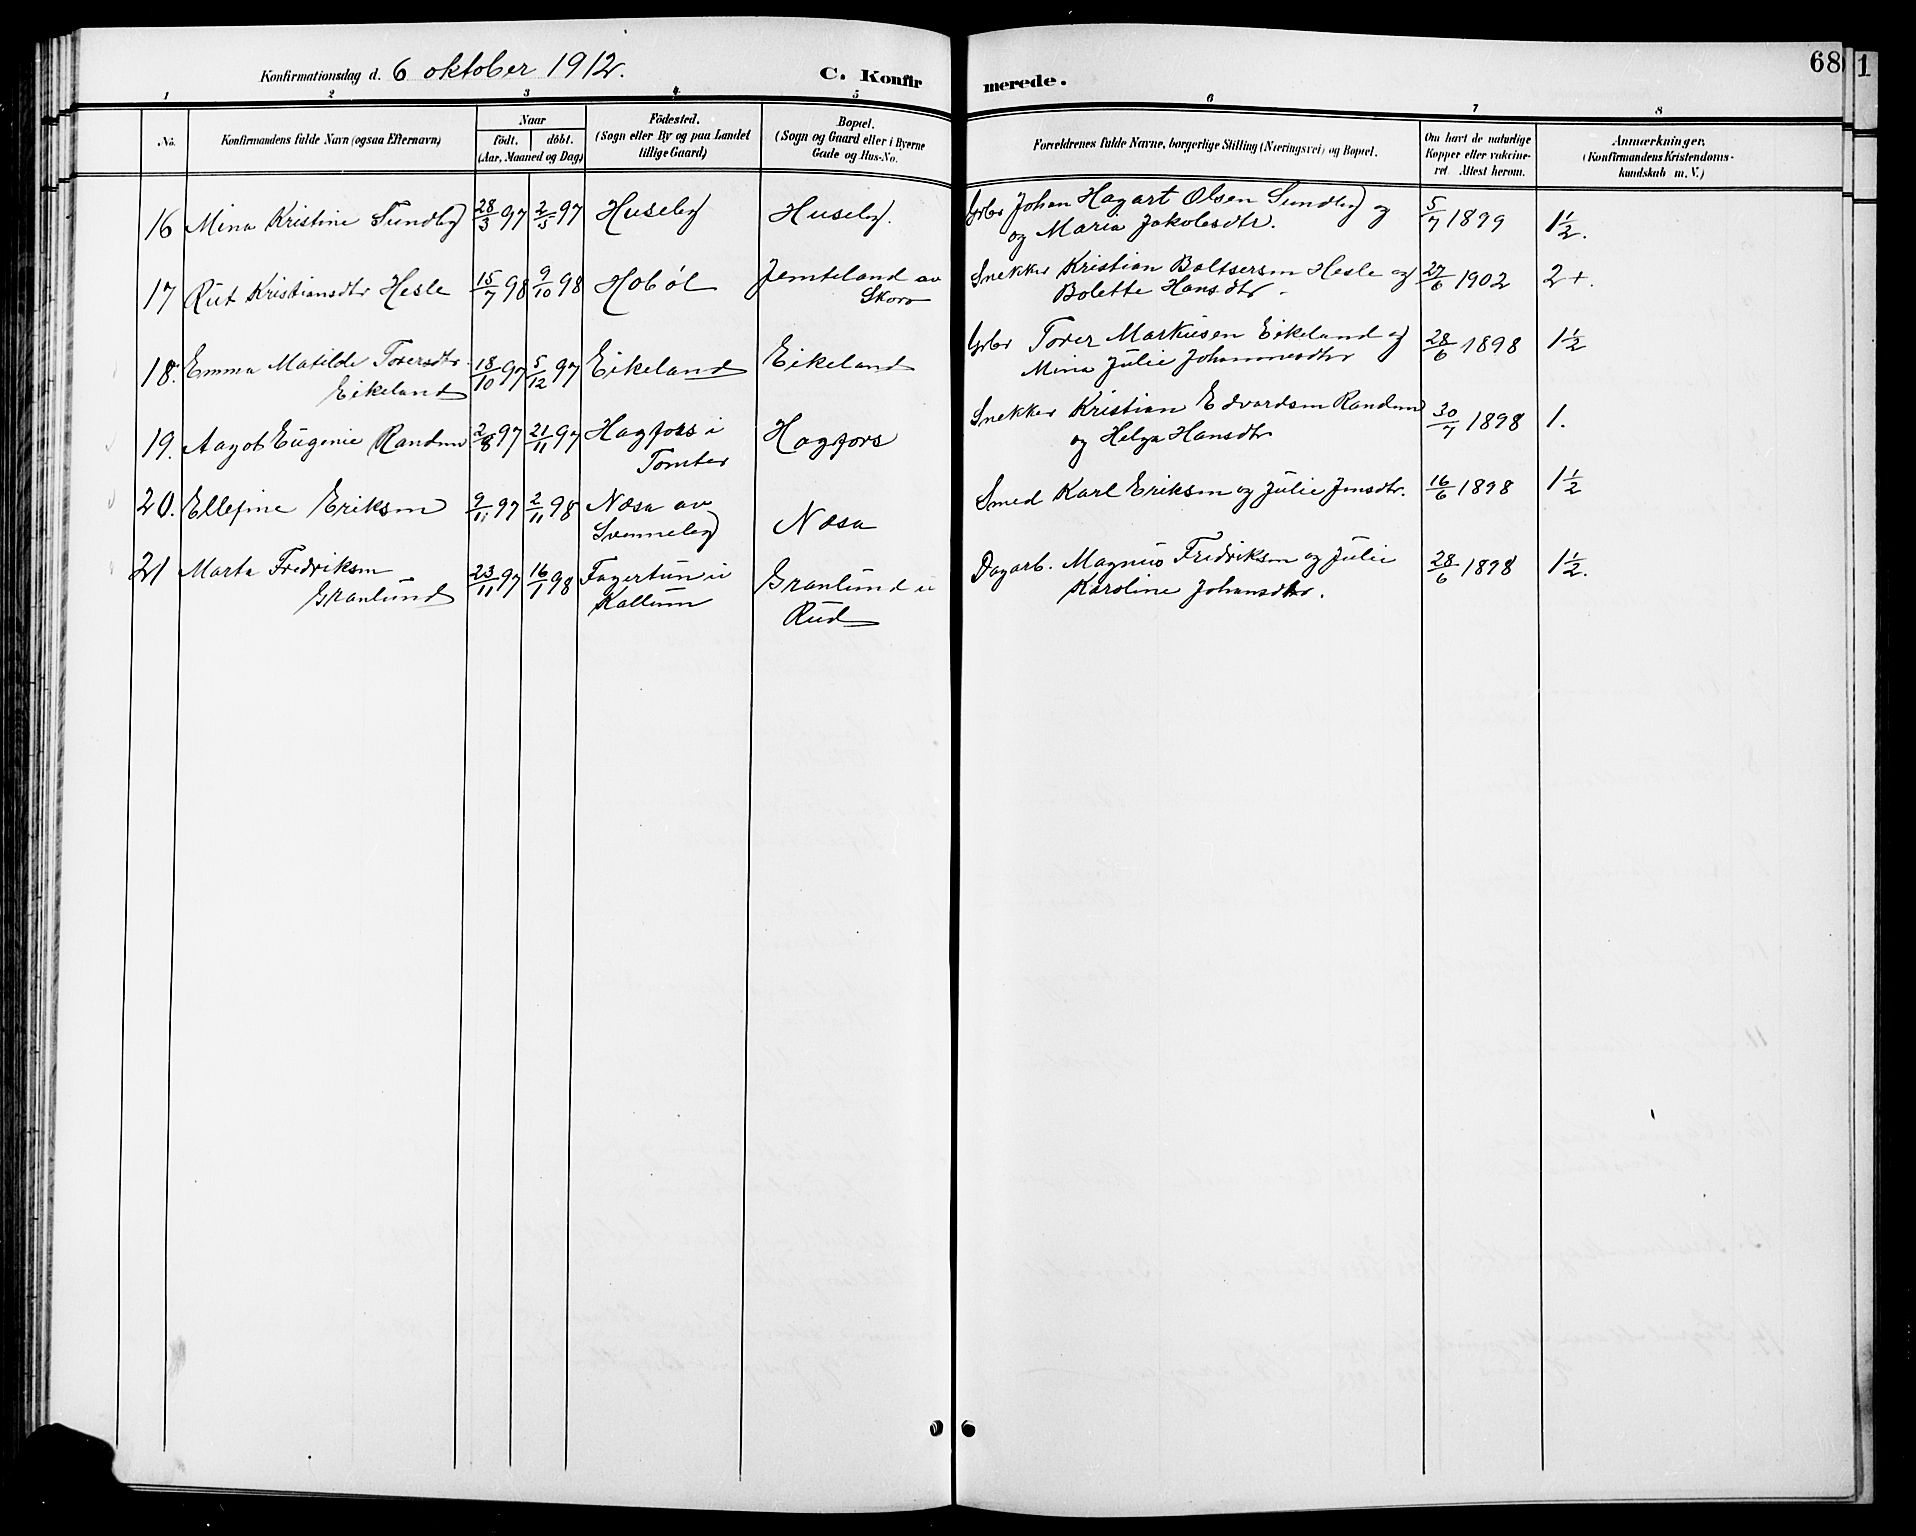 68
1
Konfirmationsdag d. 6 oktober 1912.
C. Konfirmerede.
1 2 3 4 5 6 7 8
No.
Konfirmandens fulde Navn (ogsaa Efternavn)
Naar
födt. döbt.
(Aar, Maaned og Dag)
Födested.
(Sogn eller By og paa Landet
tillige Gaard)
Bopæl.
(Sogn og Gaard eller i Byerne
Gade og Hus-No.
Forældrenes fulde Navne, borgerlige Stilling (Næringsvei) og Bopæl.
Om havt de naturlige
Kopper eller vakcine-
ret Attest herom.
Anmærkninger.
(Konfirmandens Kristendoms-
kundskab m. V.)
16 Mina Kristine Sundby 28/3 97 2/5 97 Huseby Huseby. Gbr Johan Hagart Olsen Sundby og
og Maria Jakobsdtr. 5/7 1899 1 1/2.
17 Rut Kristiansdtr Hesle 15/7 98 9/10 98 Hobøl Jemteland av
Skoro Snekker Kristian Baltsersen Hesle og
Bolette Hansdtr. 27/6 1902 2+.
18. Emma Matilde Toversdtr.
Eikeland 18/10 97 5/12 97 Eikeland Eikeland Gbr Tover Markusen Eikeland og
Mina Julie Johannesdtr 28/6 1898 1 1/2
19. Aagot Eugenie Randem 2/8 97 21/11 97 Hagfors i
Tomter Hagfors Snekker Kristian Edvardsen Randem
og Helga Hansdtr 30/7 1898 1.
20. Ellefine Eriksen 9/11 97 2/11 98 Næsa av
Svenneby Næsa Smed Karl Eriksen og Julie Jensdtr. 16/6 1898 1 1/2
21 Marta Fredriksen
Granlund 23/11 97 16/1 98 Fagertun u
Kallum Granlund u
Rud Dagarb. Magnus Fredriksen og Julie
Karoline Johansdtr. 28/6 1898 1 1/2.